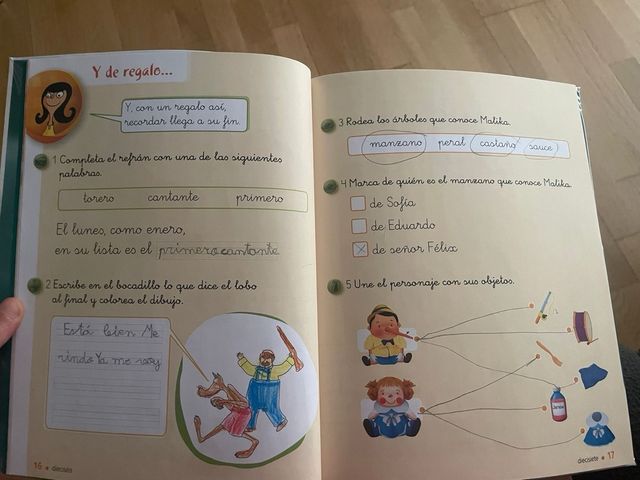 Y de regalo...
Y, con un regalo así,
recordar llega a su fin.
1 Completa el refrán con una de las siguientes
palabras.
torero cantante primero
El lunes, como enero,
en su lista es el primerocantante
2 Escribe en el bocadillo lo que dice el lobo
al final y colorea el dibujo.
Está bien Me
rindo Ya me voy
16 dieciséis
3 Rodea los árboles que conoce Malika.
manzano peral castaño sauce
4 Marca de quién es el manzano que conoce Malika.
de Sofía
de Eduardo
de señor Félix
5 Une el personaje con sus objetos.
diecisiete 17